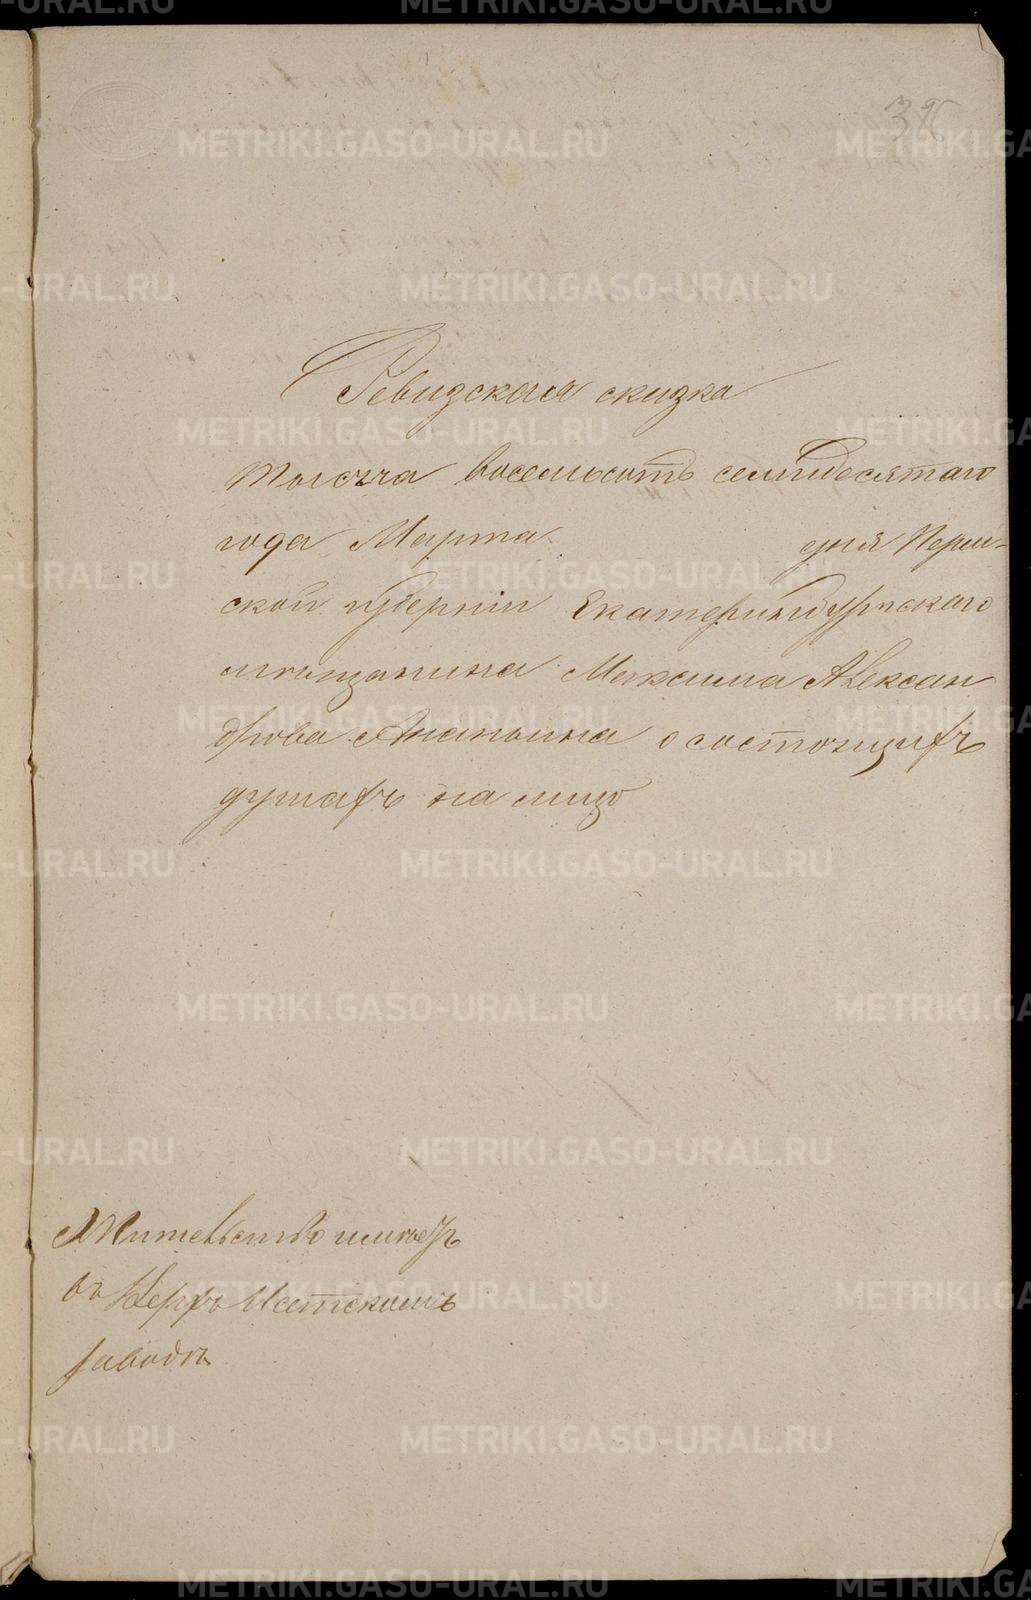 Ревизская сказка
тысяча восемьсотъ семидесятаго
года Марта дня Перм-
ской губерніи Екатеринбургскаго
мѣщанина Максима Алексан
дрова Ананьина о состоящихъ
душахъ на лицо
Жительство имѣетъ
въ Верхъ Исетскомъ
заводѣ
METRIKI.GASO-URAL.RU